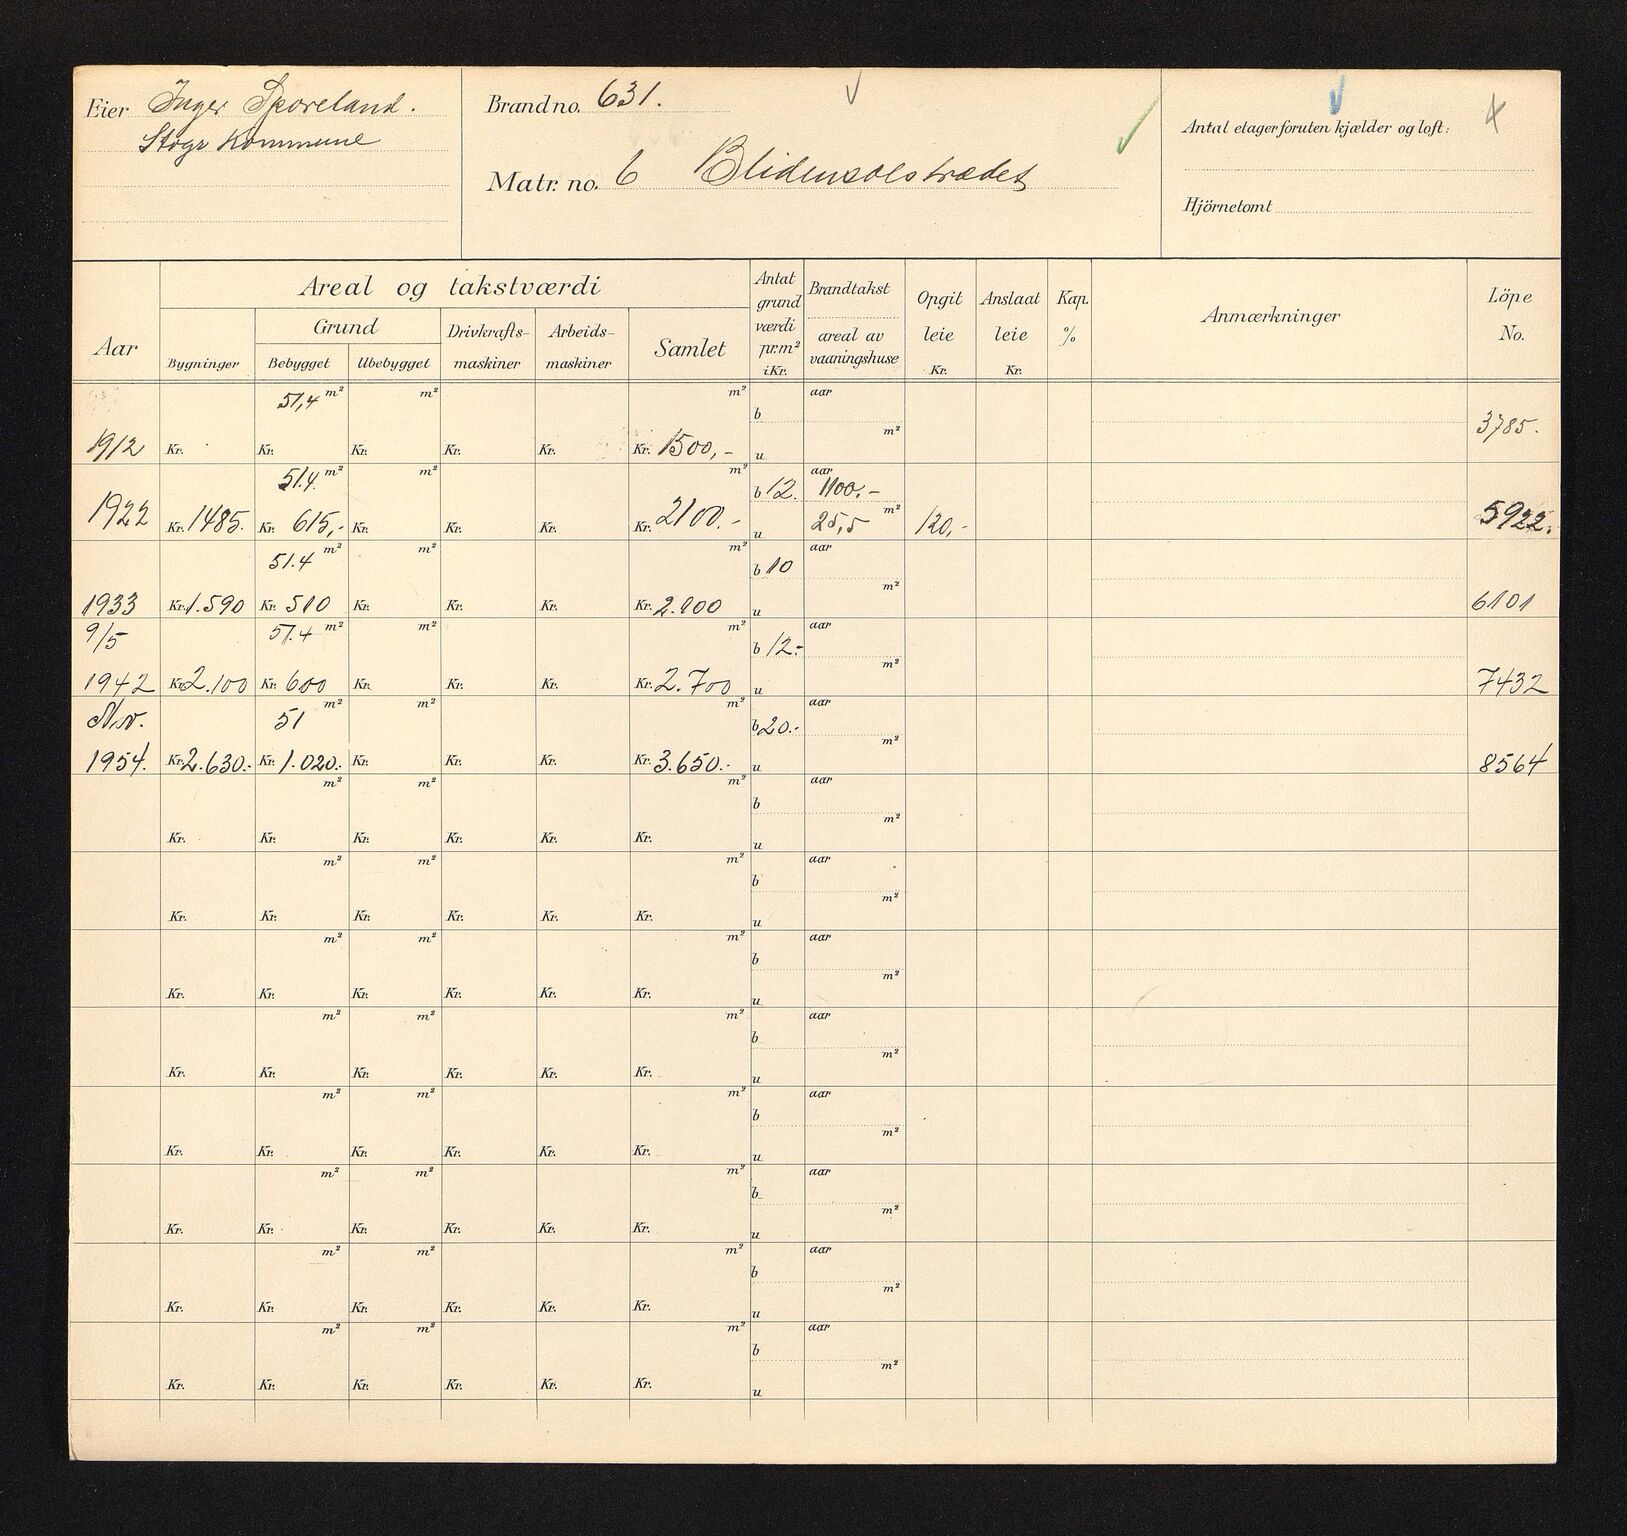 Eier Inger Sporeland.
Stvgr Kommune
Brand no. 631.
Matr. no. 6 Blidensolstrædet
Antal etager foruten kjælder og loft:
Hjörnetomt
Aar
Areal og takstværdi
Bygninger
Grund
Bebygget Ubebygget
Drivkrafts-
maskiner
Arbeids-
maskiner
Samlet
Antat
grund
værdi
pr. m²
i Kr.
Brandtakst
areal av
vaaningshuse
Opgit
leie
Kr.
Anslaat
leie
Kr.
Kap.
%
Anmærkninger
Löpe
No.
51,4 m² m² m² b aar
1912 Kr. Kr. Kr. Kr. Kr. Kr. 1500,- u m² 3785.
51.4 m² m² m² b 12. aar 1100.-
1922 Kr. 1485. Kr. 615,- Kr. Kr. Kr. Kr. 2100.- u 25,5 m² 120,- 5922.
51.4 m² m² m² b 10 aar
1933 Kr. 1.590 Kr. 510 Kr. Kr. Kr. Kr. 2.100 u m² 6101
9/5 51.4 m² m² m² b 12.- aar
1942 Kr. 2.100 Kr. 600 Kr. Kr. Kr. Kr. 2.700 u m² 7432
Nov. 51 m² m² m² b 20.- aar
1954. Kr. 2.630.- Kr. 1.020.- Kr. Kr. Kr. Kr. 3.650.- u m² 8564
m² m² m² b aar
Kr. Kr. Kr. Kr. Kr. Kr. u m²
m² m² m² b aar
Kr. Kr. Kr. Kr. Kr. Kr. u m²
m² m² m² b aar
Kr. Kr. Kr. Kr. Kr. Kr. u m²
m² m² m² b aar
Kr. Kr. Kr. Kr. Kr. Kr. u m²
m² m² m² b aar
Kr. Kr. Kr. Kr. Kr. Kr. u m²
m² m² m² b aar
Kr. Kr. Kr. Kr. Kr. Kr. u m²
m² m² m² b aar
Kr. Kr. Kr. Kr. Kr. Kr. u m²
m² m² m² b aar
Kr. Kr. Kr. Kr. Kr. Kr. u m²